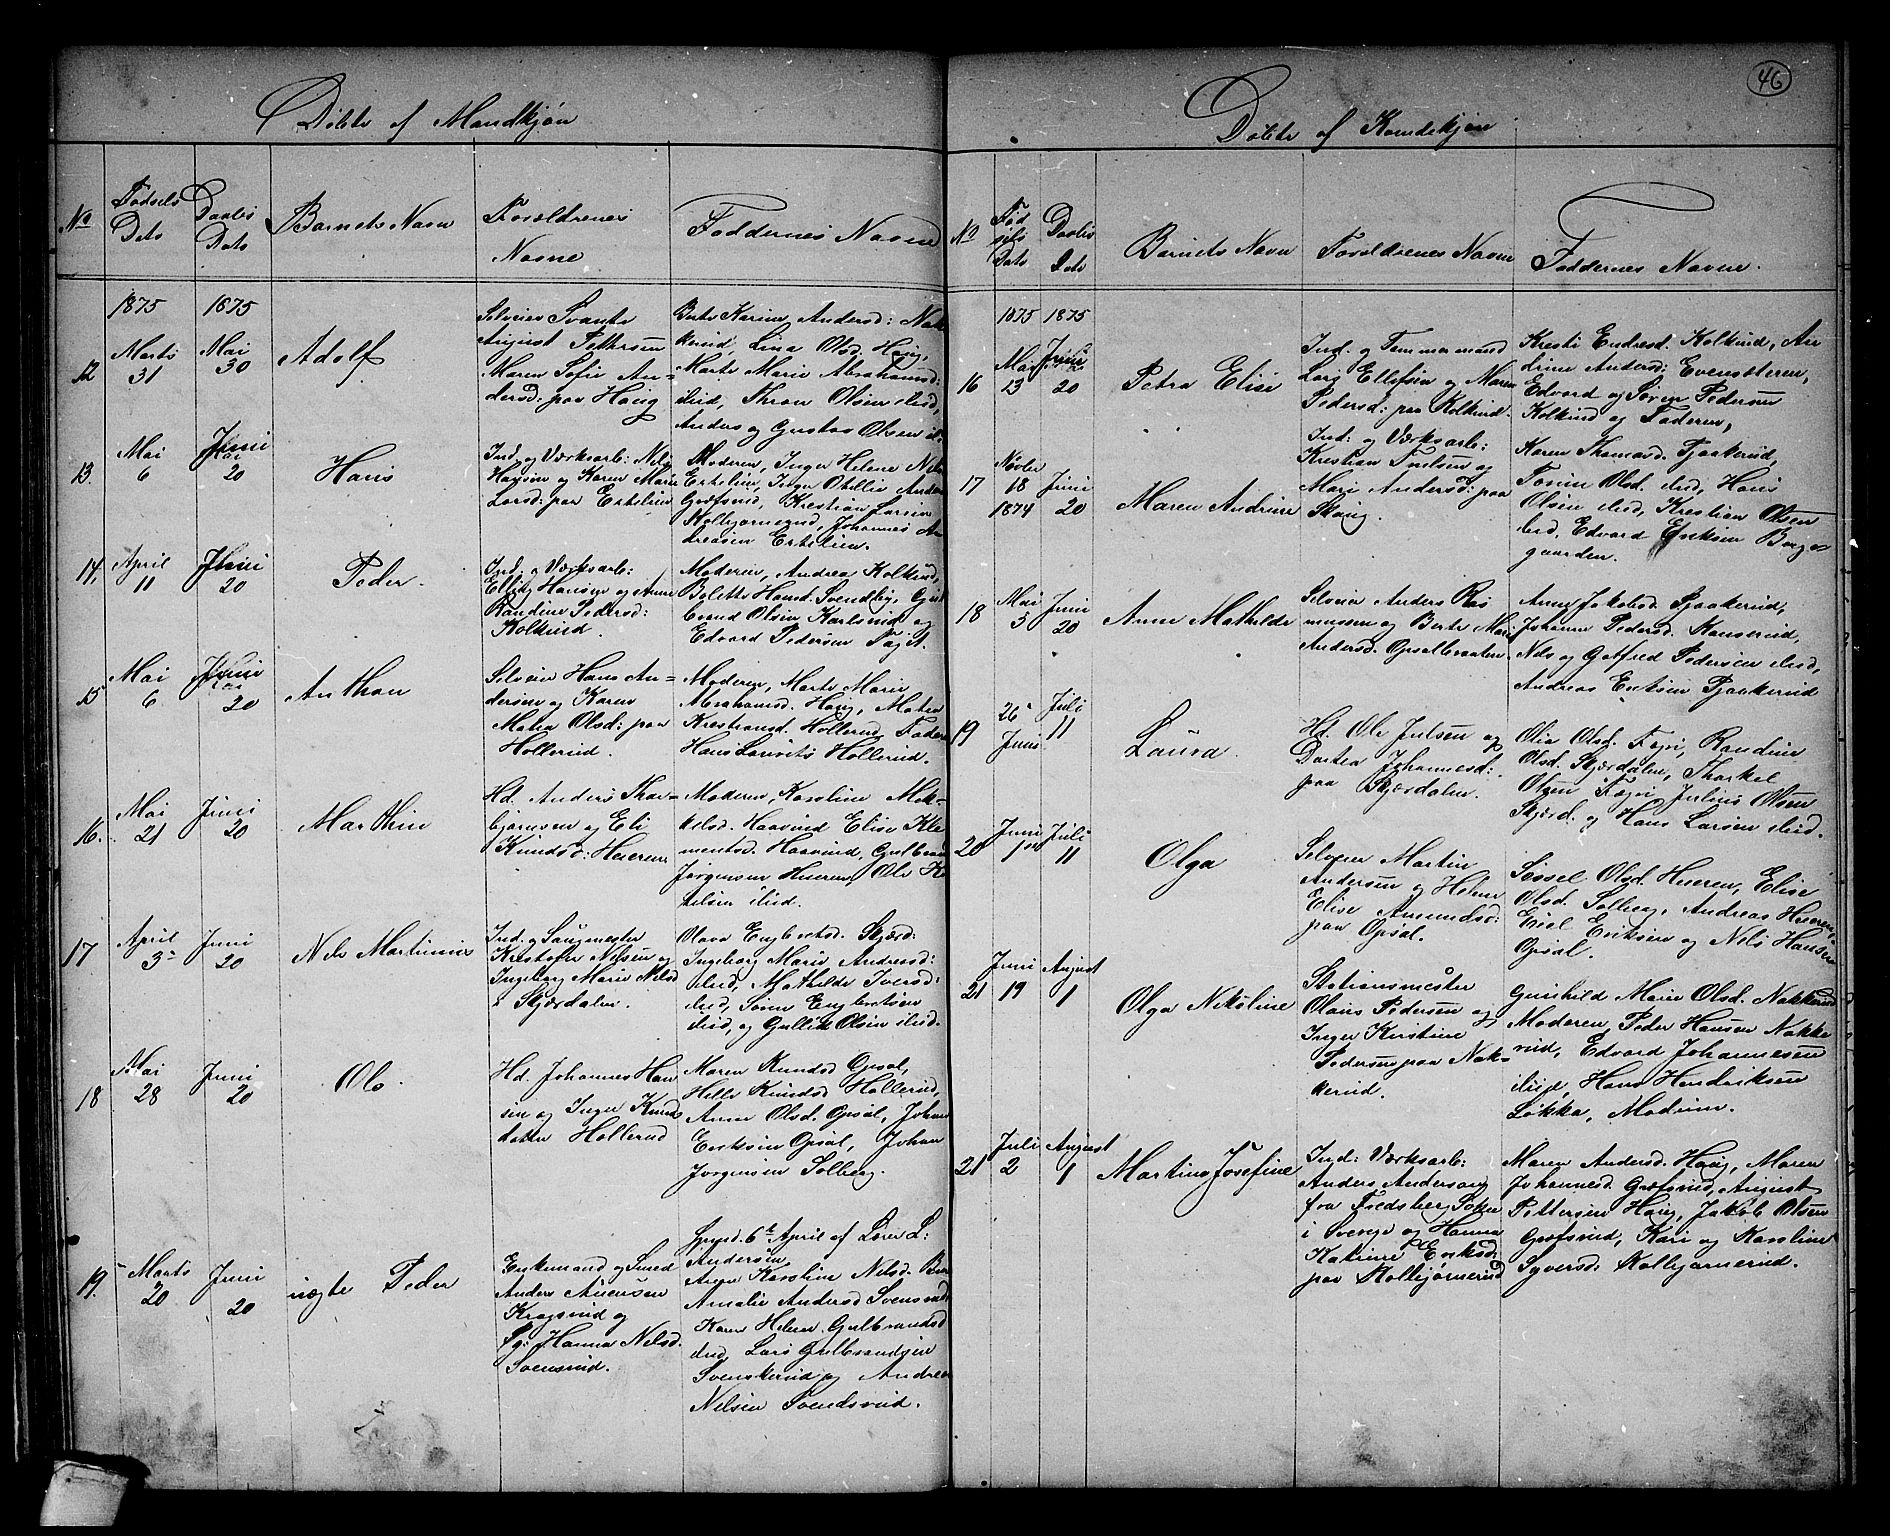 46
Døbte af Mandkjøn
No
Fødsels Dato
Daabs Dato
Barnets Navn
Forældrenes Navne
Faddernes Navne
1875
1875
12
Marts 31
Mai 30
Adolf
Selveier Svante
August Pettersen
Maren Sofie An=
dersd: paa Haug
Berte Karine Andersd: Nak
kerud, Lina Olsd. Haug,
Marte Marie Abrahamsd:
ibid, Thron Olsen ibid,
Anders og Gustav Olsen ib.
13.
Mai 6
Juni 20
Hans
Ind. og Værksarb: Nils
Hansen og Karen Marie
Larsd: paa Ertelien
Moderen, Inger Helene Nils
Ertelien, Inger Otillie Anders
Græfsrud, Krestian Larsen
Kolbjørnsrud, Johannes An
dreasen Ertelien.
14,
April 11
Juni 20
Peder.
Ind. og Værksarb:
Elling Hansen og Anne
Randine Pedersd:
Kolkind.
Moderen, Andrea Kolkind,
Bolette Hansd. Svendby, Gul
brand Olsen Karlsrud og
Edvard Pedersen
15
Mai 6
Juni 20
Anthon
Selveier Hans An=
dersen og Karen
Matea Olsd: paa
Hollerud.
Moderen, Marte Marie
Abrahamsd. Haug, Matea
Krestiansd. Hollerud, Faderen
Hans Laurits Hollerud.
16.
Mai 21
Juni 20
Marthin
Hd. Anders Thor=
bjørnsen og Eli
Knudsd: Hueren
Moderen, Karoline Mik=
kelsd. Haavind, Elise Kle
mentsd. Haavind, Gulbrand
Jørgensen Hueren, Ole K
ielsen ibid.
17
April 3
Juni 20
Nils Martinius
Ind. og Saugmester
Kristofer Nilsen og
Ingeborg Marie Nilsd
i Skjærdalen.
Olava Englbretsd. Skjærd:
Ingeborg Marie Andreasd:
ibid, Mathilde Iversd:
ibid, Søren Englbretsen
ibid, og Gullik Olsen ibid.
18
Mai 28
Juni 20
Ole
Hd. Johannes Han
sen og Inger Knuds
datter Hollerud
Maren Knudsd Opsal,
Helle Knudsd Hollerud,
Anne Olsd. Opsal, Johan
Eriksen Opsal, Johan
Jørgensen Solberg.
19.
Marts 20
Juni 20
uægte Peder
Enkemand og Smed
Anders Anensen
Kragsrud og
Pg: Hanna Nilsd.
Svensrud.
Hjemd. 6te April af Lærer L:
Andersen
Anne Karoline Nilsd.
Amalie Andersd Svensrud
Karen Helene Gulbrandsd
ibid, Lars Gulbrandsen
Svenskerud og Andreas
Nilsen Svendsrud.
Døbte af Kvindekjøn
No
Fød
sels
Dato
Daabs
Dato
Barnets Navn
Forældrenes Navne
Faddernes Navne.
1875
1875
16
Mai 13
Juni 20
Petra Elise
Ind. og Tømmermand
Lars Ellefsen og Maren
Pedersd: paa Kolkind.
Kresti Endresd. Kolkind, An
drine Andersd: Evensteren,
Edvard og Søren Pedersen
Kolkind og Faderen,
17
Novbr 18 1874
Juni 20
Maren Andrine
Ind: og Værksarb:
Krestian Torelsen og
Mari Andersd: paa
Haug.
Karen Thomasd. Tjaakerud,
Torine Olsd. ibid, Hans
Olsen ibid, Krestian Olsen
ibid, Edvard Eriksen Borge=
gaarden.
18
Mai 5
Juni 20
Anne Mathilde
Selveier Anders Ras
mussen og Berte Mari
Andersd. Opsalbraaten.
Anne Jakobsd. Tjaakerud,
Johanne Pedersd. Kanserud,
Nils og Gotfred Pedersen ibid,
Andreas Eriksen Tjaakerud
19
26 Juni
Juli 11
Laura.
Hd. Ole Julsen og
Dortea Johannesd:
paa Skjærdalen.
Olia Olsd. Fagri, Randine
Olsd. Skjærdalen, Thorkel
Olsen Fagri, Julius Olsen
Skjærd. og Hans Larsen ibid.
20
Juni 1ste
Juli 11
Olga
Selveier Martin
Andersen og Helene
Elise Amundsd:
paa Opsal.
Sissel Olsd. Hueren, Elise
Olsd. Solberg, Andreas Hueren,
Eriel Eriksen og Nils Hansen
Opsal.
21
Juni 19
August 1
Olga Nikoline
Stationsmester
Olaus Pedersen og
Inger Kirstine
Pedersen paa Nak=
kerud.
Gunhild Marie Olsd. Nakkerud
Moderen, Peder Hansen Nakke
rud, Edvard Johannesen
ibid, Hans Hendriksen
Løkka, Modum.
21
Juli 2
August 1
Martina Josefine
Ind: Værksarb:
Anders Anderson
fra Fredsberg Sokken
i Sverge og Hanna
Katrine Eriksd:
paa Kolbjørnsrud
Maren Andersd. Haug, Maren
Johannesd. Græfsrud, August
Pettersen Haug, Jakob Olsen
Græfsrud, Kari og Karoline
Syversd. Kolbjørnsrud.